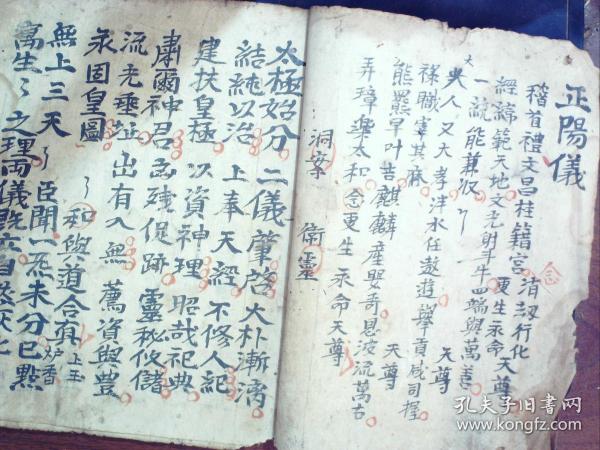 正陽儀
稽首禮文昌桂籍宮 清㓜行化
念
更生永命天尊
經緯範天地文光射斗牛四端與萬善
一統能兼收 天尊
大夫人又大孝泮水任遨遊舉貢咸司握
祿職宰其麻 天尊
能羆早叶吉麒麟産嬰哥恩波流萬古
弄璋樂太和 念更生永命天尊
洞案 衛靈
太極始分 二儀肇啓 大朴漸漓
結繩以治 上奉天經 不修人紀
建扶皇極 以資神理 昭哉祀典
肅爾神君 促跡 靈秘攸儲
流光垂 出有入無 薦資與豊
永固皇圖
和與道合真 上玉炉香
無上三天 臣聞一炁未分已㸃
萬生之理兩儀既
孔夫子旧书网
www.kongfz.com